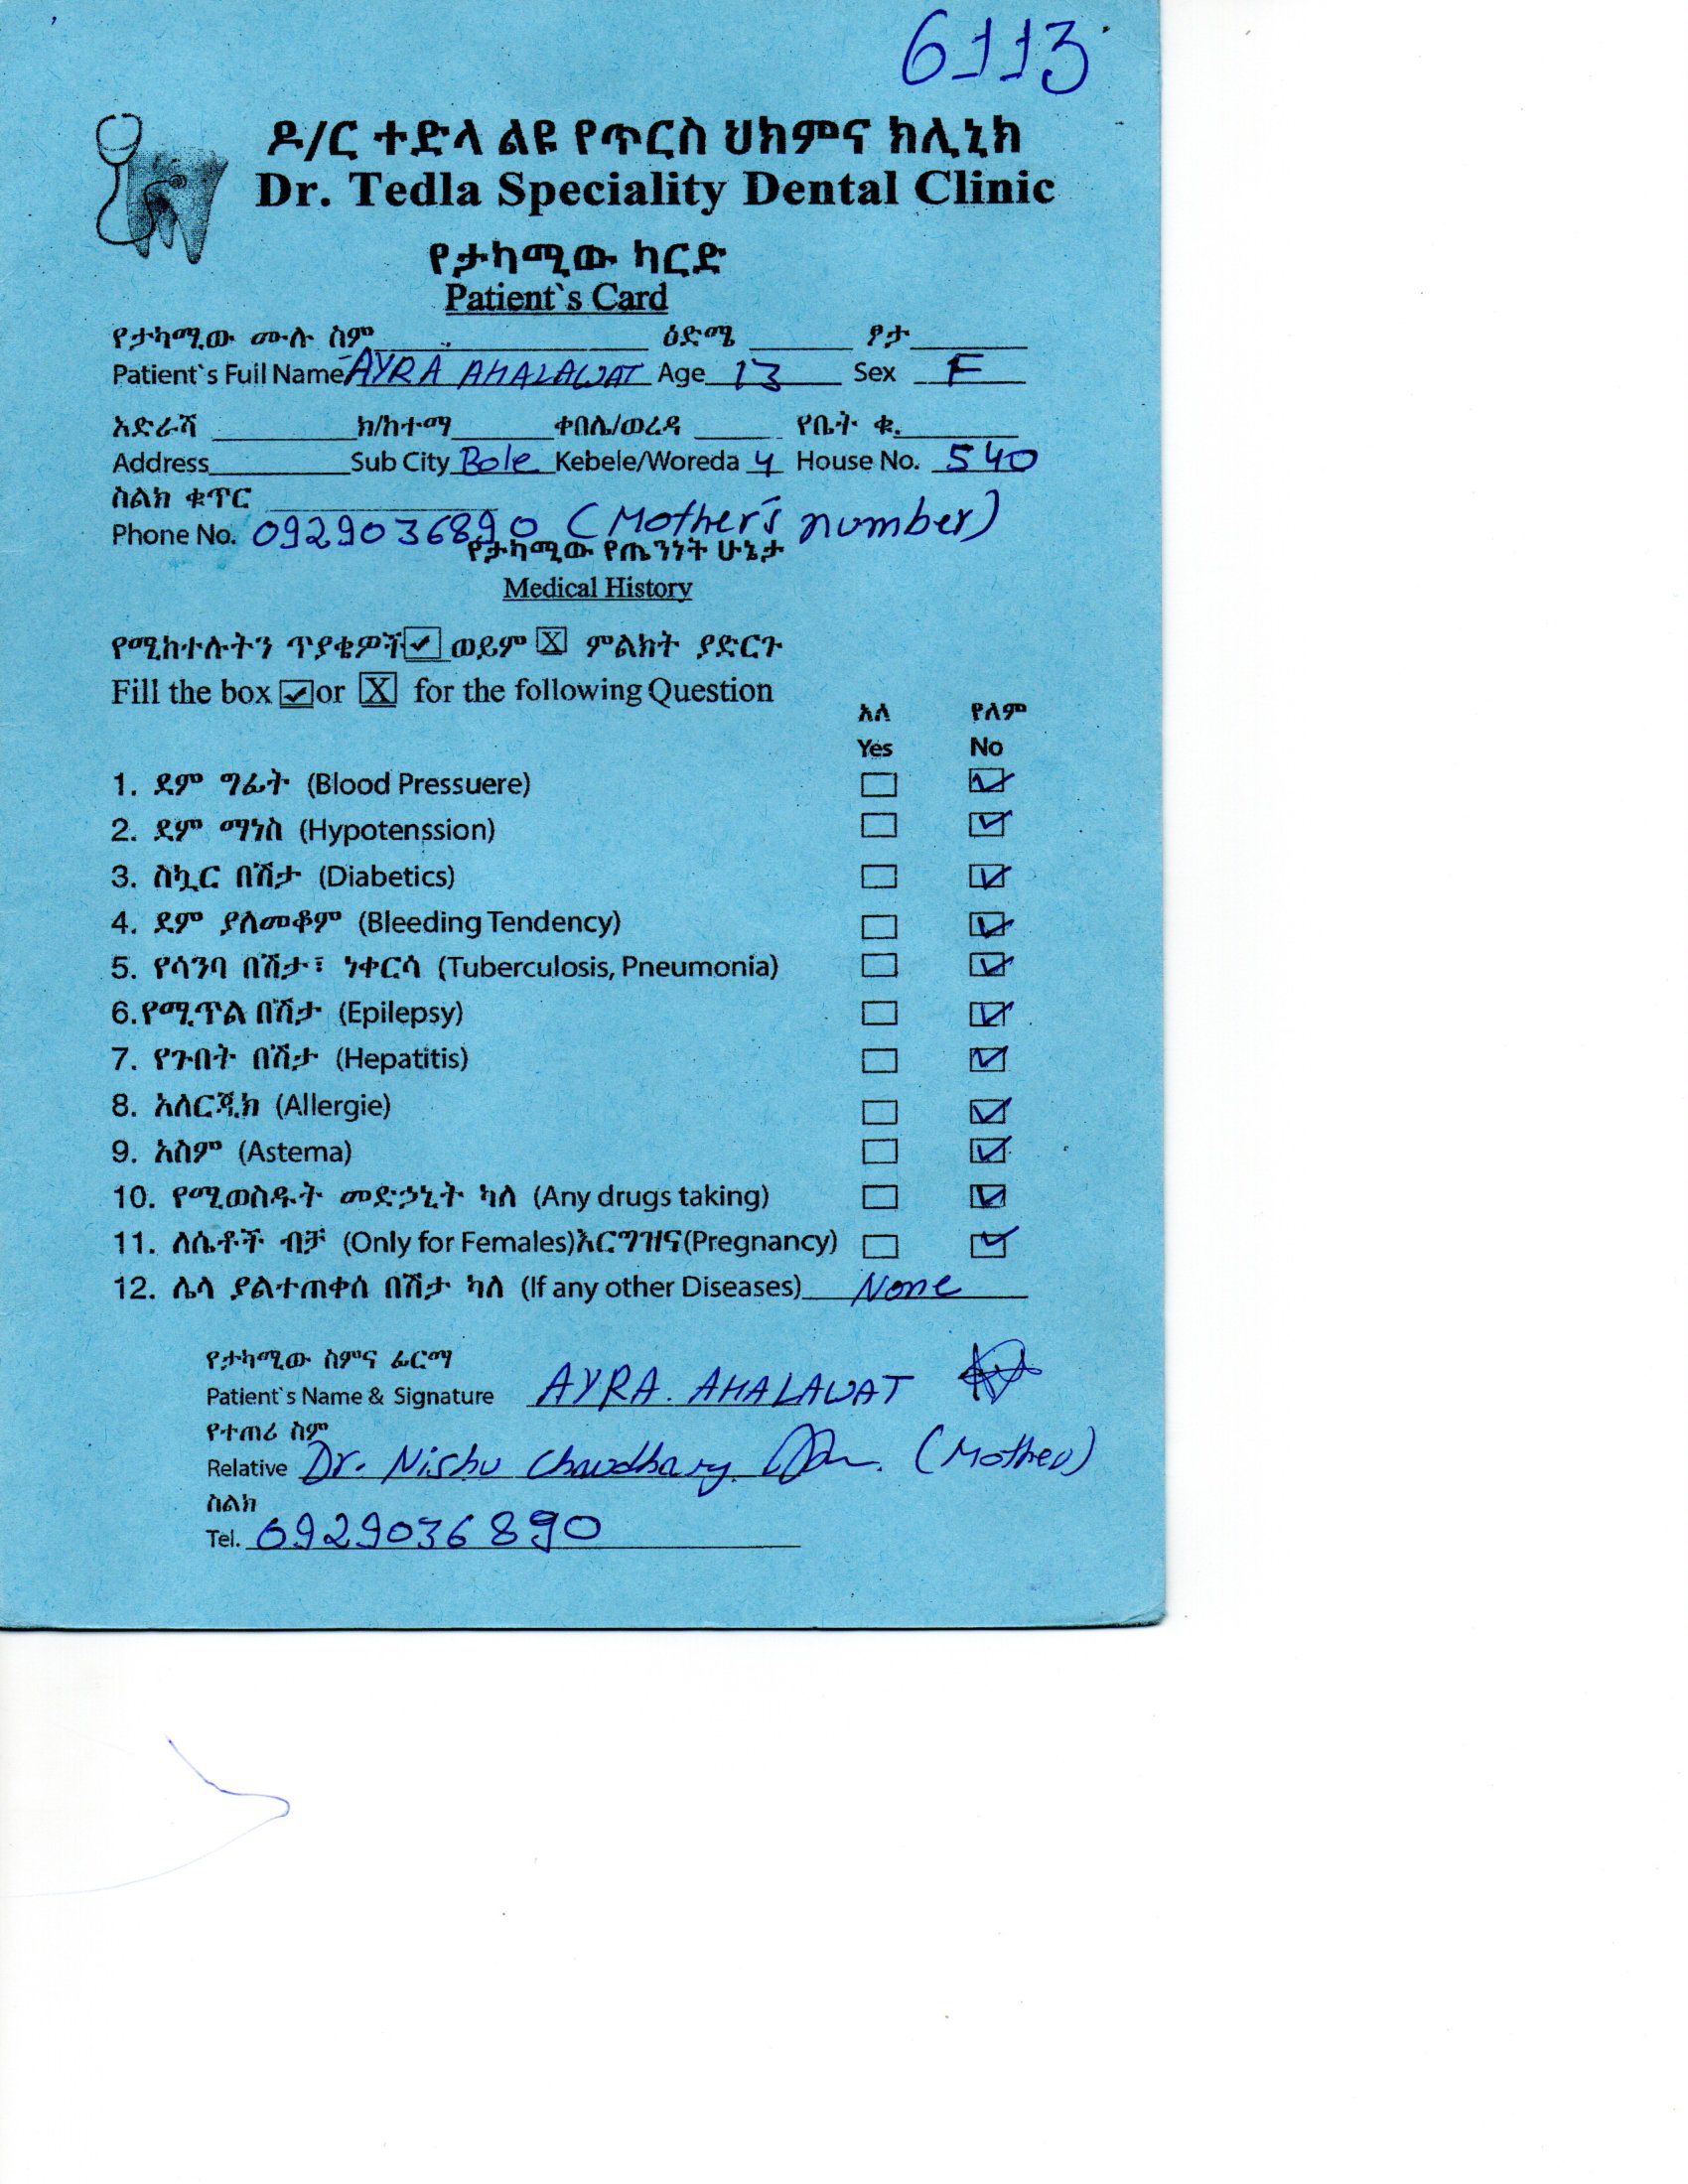 6113
ዶ/ር ተድላ ልዩ የጥርስ ህክምና ክሊኒክ
Dr. Tedla Speciality Dental Clinic
የታካሚው ካርድ
Patient`s Card
የታካሚው ሙሉ ስም ዕድሜ ፆታ
Patient`s Full Name AYRA AHALAWAT Age 13 Sex F
አድራሻ ክ/ከተማ ቀበሌ/ወረዳ የቤት ቁ.
Address Sub City Bole Kebele/Woreda 4 House No. 540
ስልክ ቁጥር
Phone No. 0929036890 (Mother's number)
የታካሚው የጤንነት ሁኔታ
Medical History
የሚከተሉትን ጥያቄዎች ✓ ወይም X ምልክት ያድርጉ
Fill the box ✓ or X for the following Question
አለ የለም
Yes No
1. ደም ግፊት (Blood Pressuere) ☐ ☑
2. ደም ማነስ (Hypotenssion) ☐ ☑
3. ስኳር በሽታ (Diabetics) ☐ ☑
4. ደም ያለመቆም (Bleeding Tendency) ☐ ☑
5. የሳንባ በሽታ፣ ነቀርሳ (Tuberculosis, Pneumonia) ☐ ☑
6. የሚጥል በሽታ (Epilepsy) ☐ ☑
7. የጉበት በሽታ (Hepatitis) ☐ ☑
8. አለርጂክ (Allergie) ☐ ☑
9. አስም (Astema) ☐ ☑
10. የሚወስዱት መድኃኒት ካለ (Any drugs taking) ☐ ☑
11. ለሴቶች ብቻ (Only for Females)እርግዝና(Pregnancy) ☐ ☑
12. ሌላ ያልተጠቀሰ በሽታ ካለ (If any other Diseases) None
የታካሚው ስምና ፊርማ
Patient`s Name & Signature AYRA. AHALAWAT
የተጠሪ ስም
Relative Dr. Nishu Chaudhary (Mother)
ስልክ
Tel. 0929036890